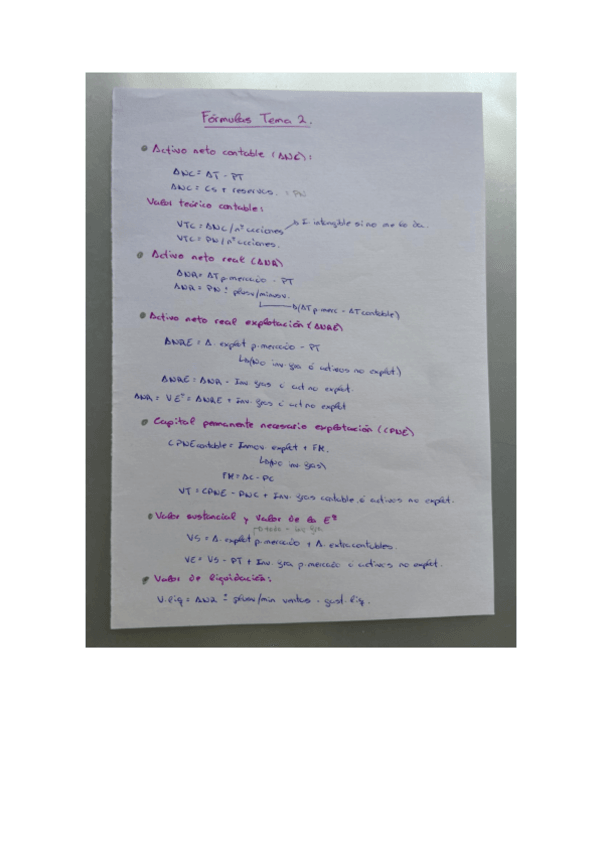 Fórmulas Tema 2.
Activo neto contable (ANC):
ANC = AT - PT
ANC = CS + reservas. = PN
Valor teórico contable:
VTC = ANC / nº acciones → I. intangible si no me lo da.
VTC = PN / nº acciones.
Activo neto real (ANR)
ANR = AT p. mercado - PT
ANR = PN ± plusv/minusv.
(AT p. merc - AT contable)
Activo neto real explotación (ANRE)
ANRE = A. explot p. mercado - PT
(No inv. gras ó activos no explot)
ANRE = ANR - Inv. gras ó act no explot.
ANR = VEª = ANRE + inv. gras ó act no explot
Capital permanente necesario explotación (CPNE)
CPNE contable = Inmov. explot + FM.
(No inv. gras)
FM = AC - PC
VT = CPNE - PNC + Inv. gras contable ó activos no explot.
Valor sustancial y Valor de la Eª
VS = A. explot p. mercado + A. extracontables.
VE = VS - PT + Inv. gra p. mercado ó activos no explot.
Valor de liquidación:
V. liq = ANR ± plusv/min ventas - gast. liq.